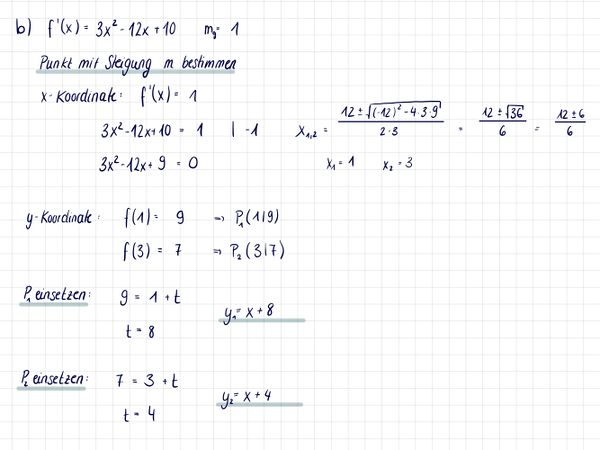 b) f'(x) = 3x² - 12x + 10 m_g = 1
Punkt mit Steigung m bestimmen
x-Koordinate: f'(x) = 1
3x² - 12x + 10 = 1 | -1
x₁,₂ = (12 ± √((-12)² - 4·3·9)) / (2·3) = (12 ± √36) / 6 = (12 ± 6) / 6
3x² - 12x + 9 = 0
x₁ = 1 x₂ = 3
y-Koordinate: f(1) = 9 => P₁(1|9)
f(3) = 7 => P₂(3|7)
P₁ einsetzen: 9 = 1 + t
t = 8
y₁ = x + 8
P₂ einsetzen: 7 = 3 + t
t = 4
y₂ = x + 4